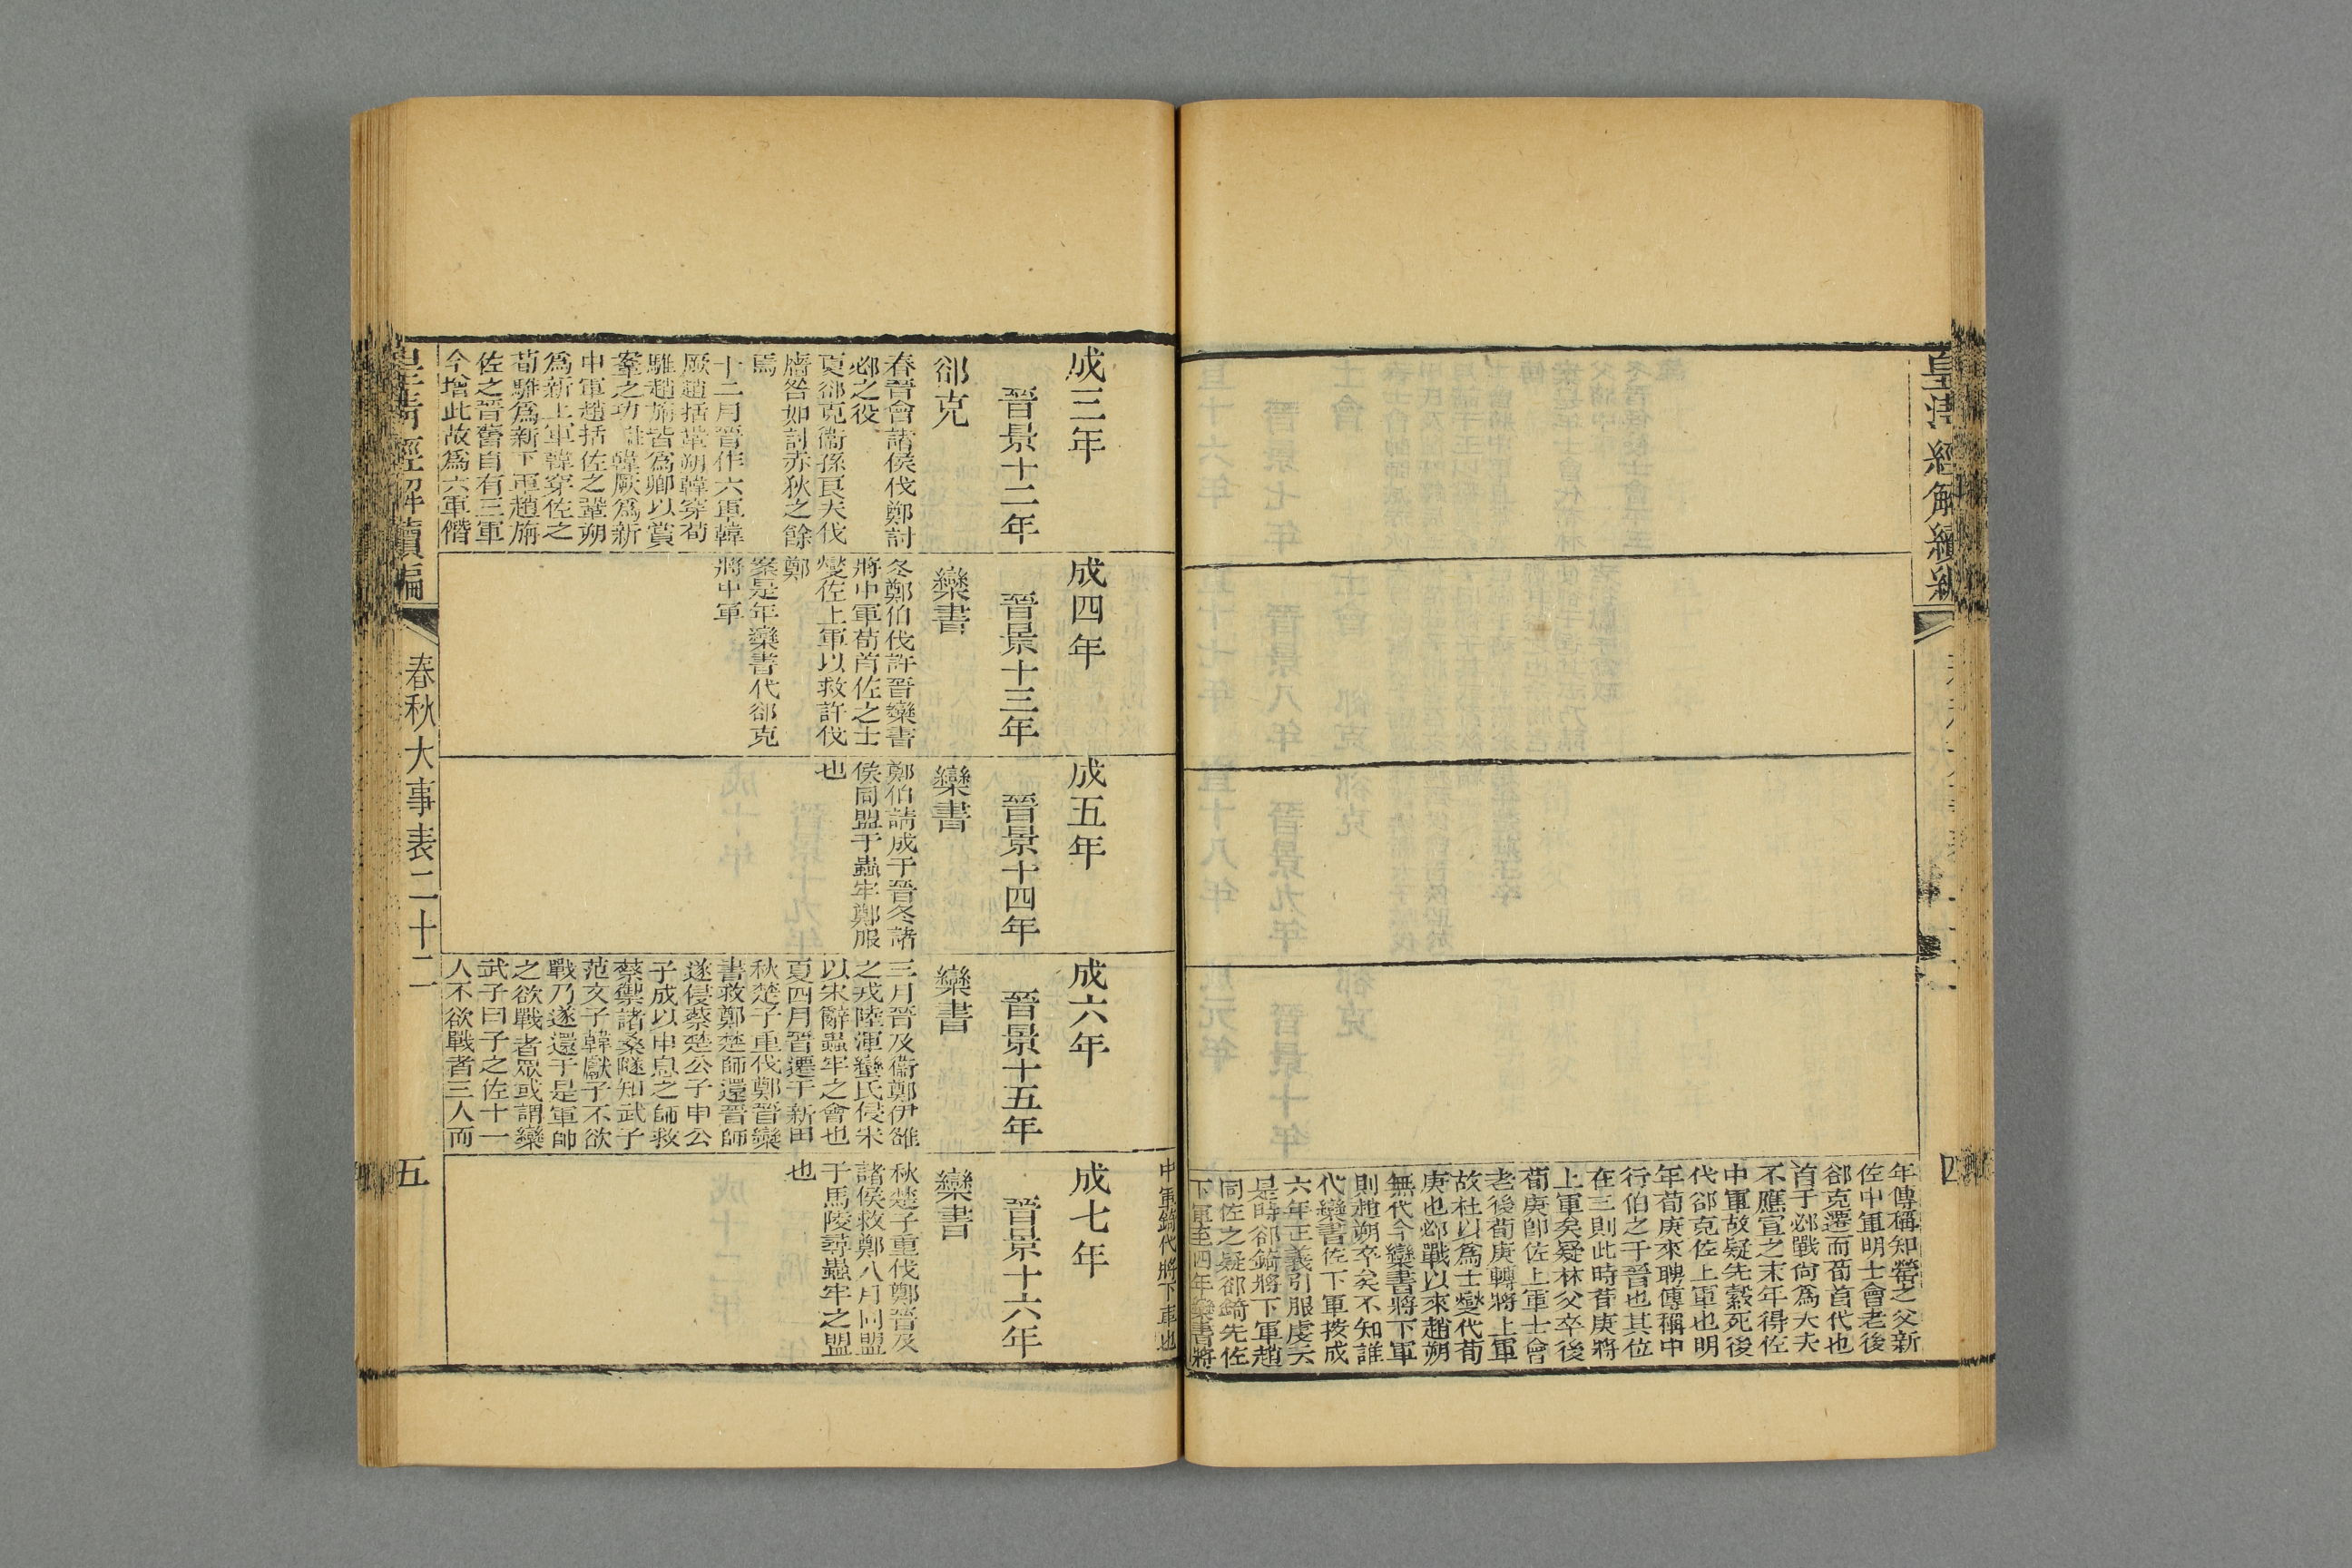 皇清經解續編
四
年傳稱知罃之父新
佐中軍明士會老後
郤克遷而荀首代也
首于邲戰尚爲大夫
不應宣之末年得佐
中軍故疑先縠死後
代郤克佐上軍也明
年荀庚來聘傳稱中
行伯之于晉也其位
在三則此時荀庚將
上軍矣疑林父卒後
荀庚卽佐上軍士會
老後荀庚轉將上軍
故杜以爲士燮代荀
庚也邲戰以來趙朔
無代今欒書將下軍
則趙朔卒矣不知誰
代欒書佐下軍按成
六年正義引服虔云
是時郤錡將下軍趙
同佐之疑郤錡先佐
下軍至四年欒書將
中軍錡代將下軍也
成三年
晉景十二年
郤克
春晉會諸侯伐鄭討
邲之役
夏郤克衞孫良夫伐
廧咎如討赤狄之餘
焉
十二月晉作六軍韓
厥趙括鞏朔韓穿荀
騅趙旃皆爲卿以賞
鞌之功 韓厥爲新
中軍趙括佐之鞏朔
爲新上軍韓穿佐之
荀騅爲新下軍趙旃
佐之晉舊自有三軍
今增此故爲六軍僭
成四年
晉景十三年
欒書
冬鄭伯伐許晉欒書
將中軍荀首佐之士
燮佐上軍以救許伐
鄭
案是年欒書代郤克
將中軍
成五年
晉景十四年
欒書
鄭伯請成于晉冬諸
侯同盟于蟲牢鄭服
也
成六年
晉景十五年
欒書
三月晉及衞鄭伊雒
之戎陸渾蠻氏侵宋
以宋辭蟲牢之會也
夏四月晉遷于新田
秋楚子重伐鄭晉欒
書救鄭楚師還晉師
遂侵蔡楚公子申公
子成以申息之師救
蔡禦諸桑隧知武子
范文子韓獻子不欲
戰乃遂還于是軍帥
之欲戰者眾或謂欒
武子曰子之佐十一
人不欲戰者三人而
成七年
晉景十六年
欒書
秋楚子重伐鄭晉及
諸侯救鄭八月同盟
于馬陵尋蟲牢之盟
也
皇清經解續編
春秋大事表二十二
五